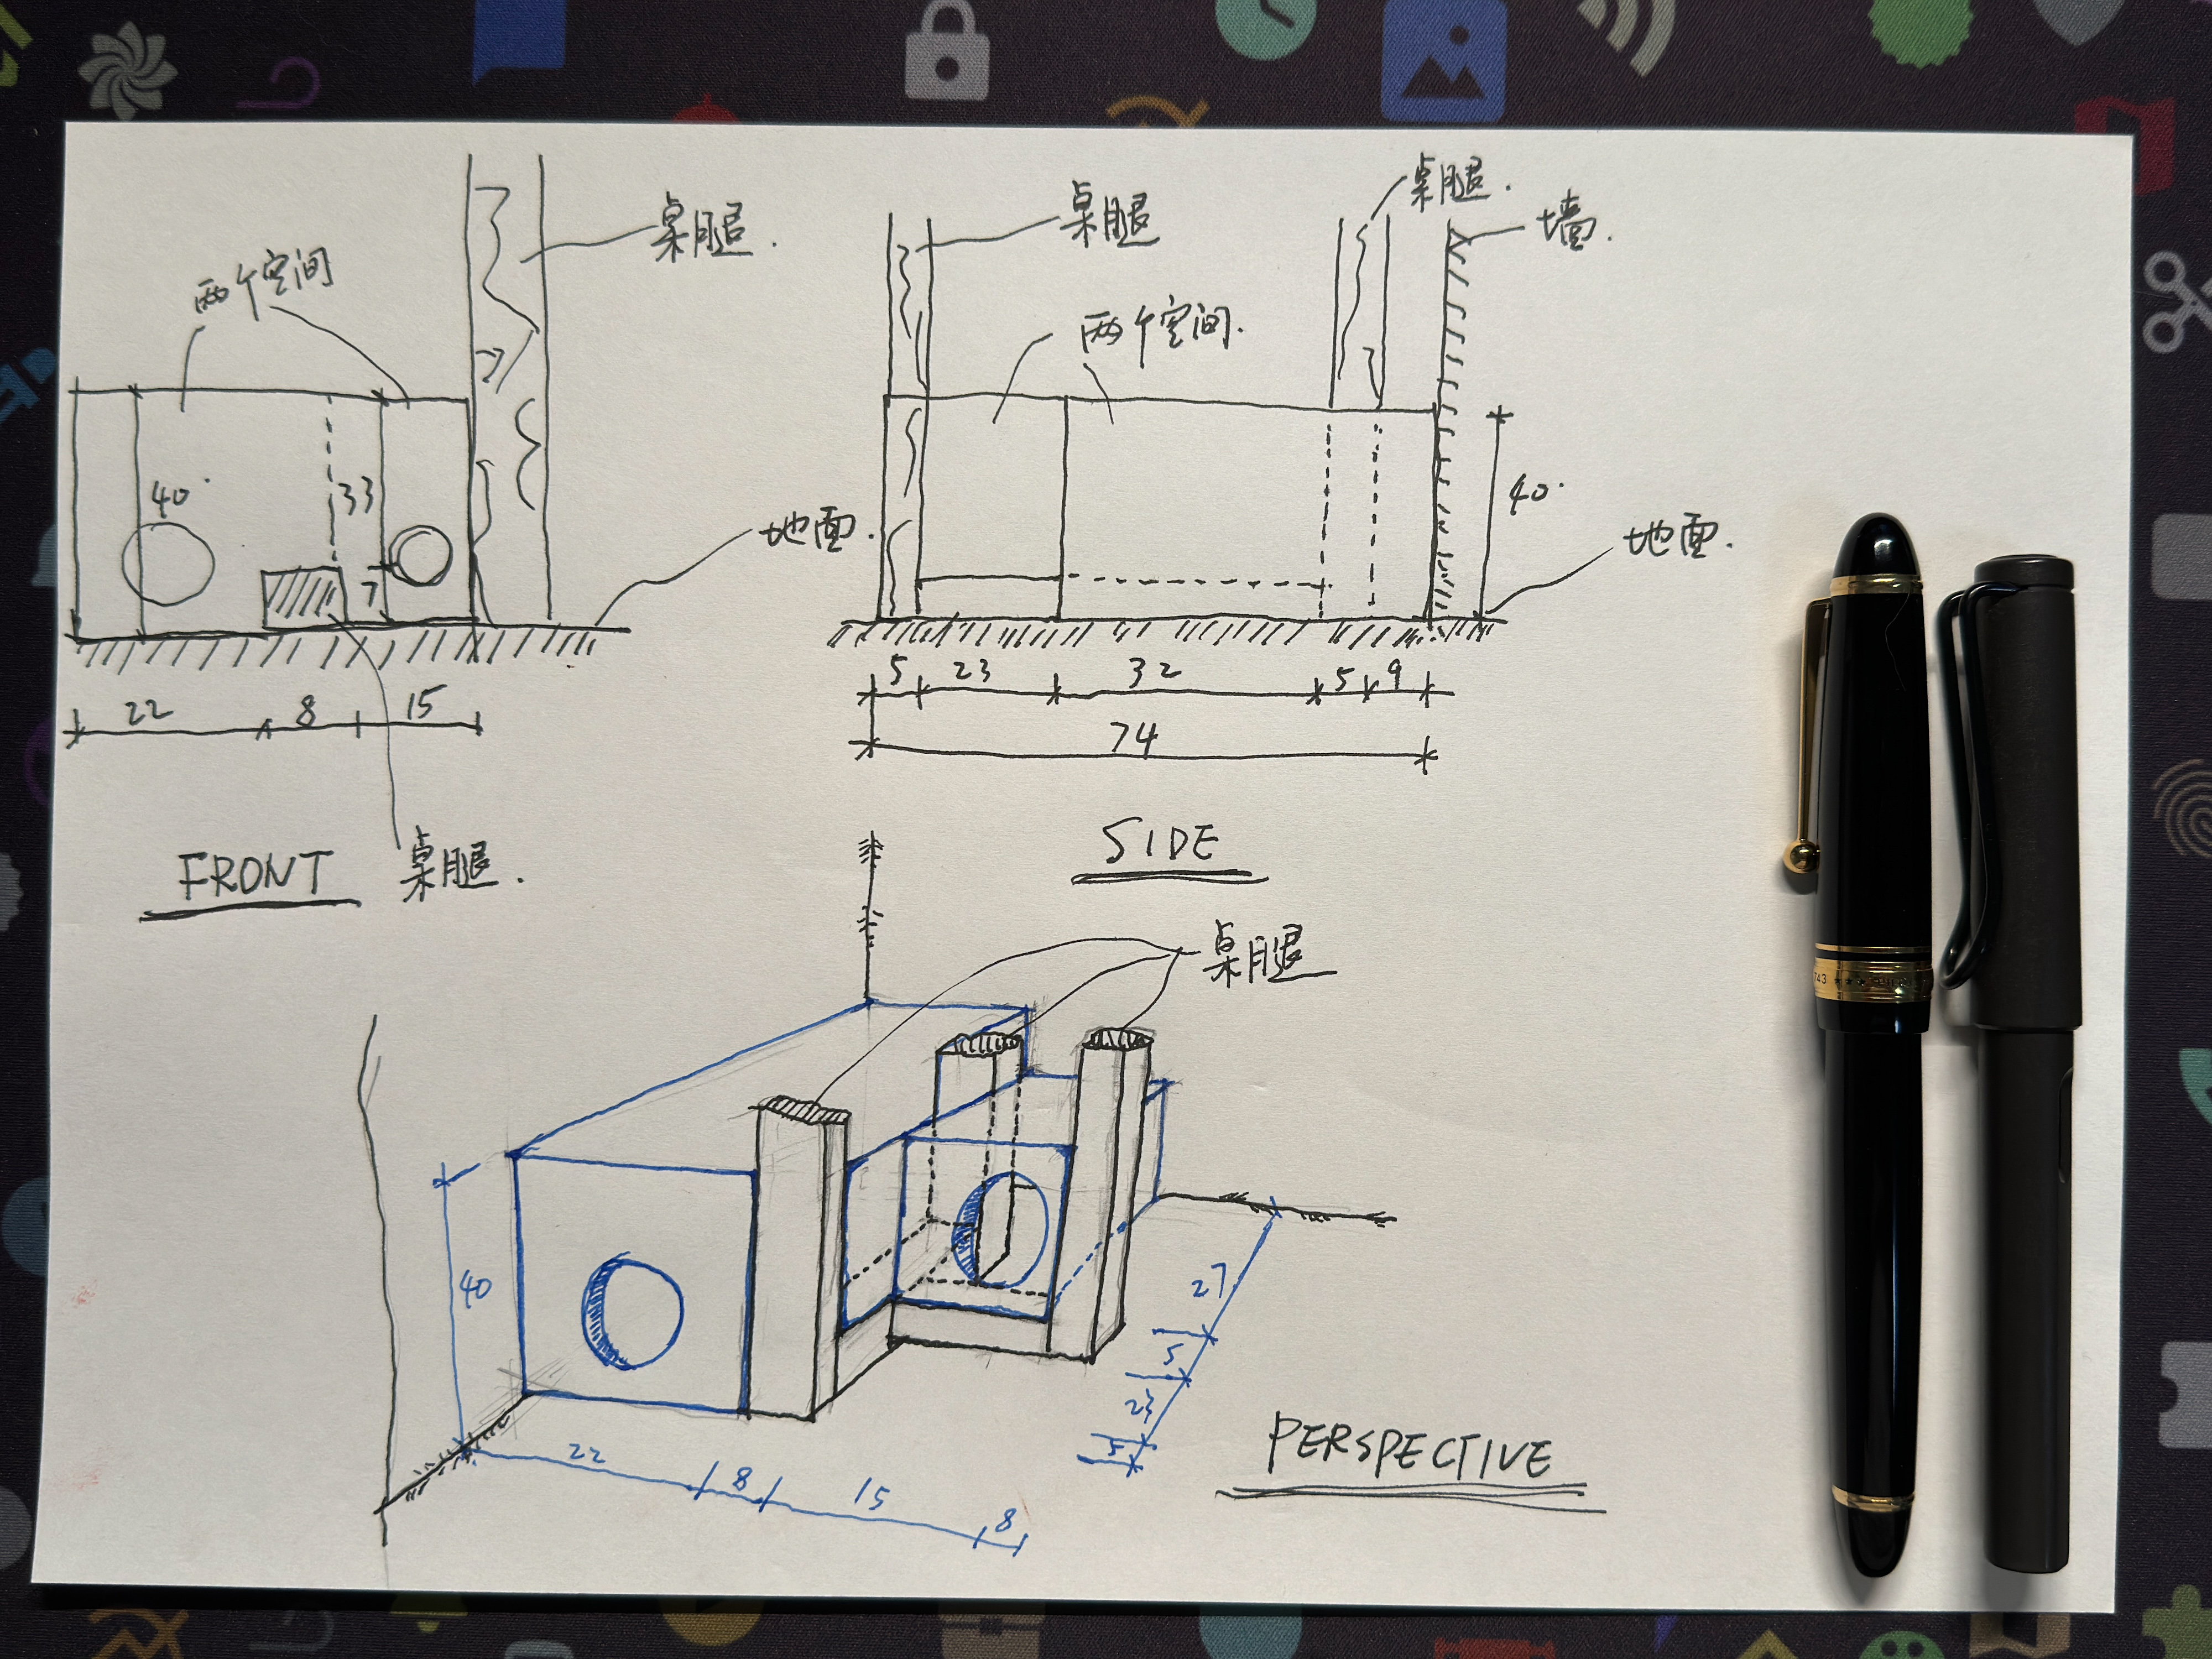 桌腿.
两个空间
40
33
7
地面.
22 8 15
FRONT
桌腿.
桌腿
桌腿.
墙.
两个空间.
40
地面.
5 23 32 5 9
74
SIDE
桌腿
40
22 8 15 8
27
5
23
5
PERSPECTIVE
743